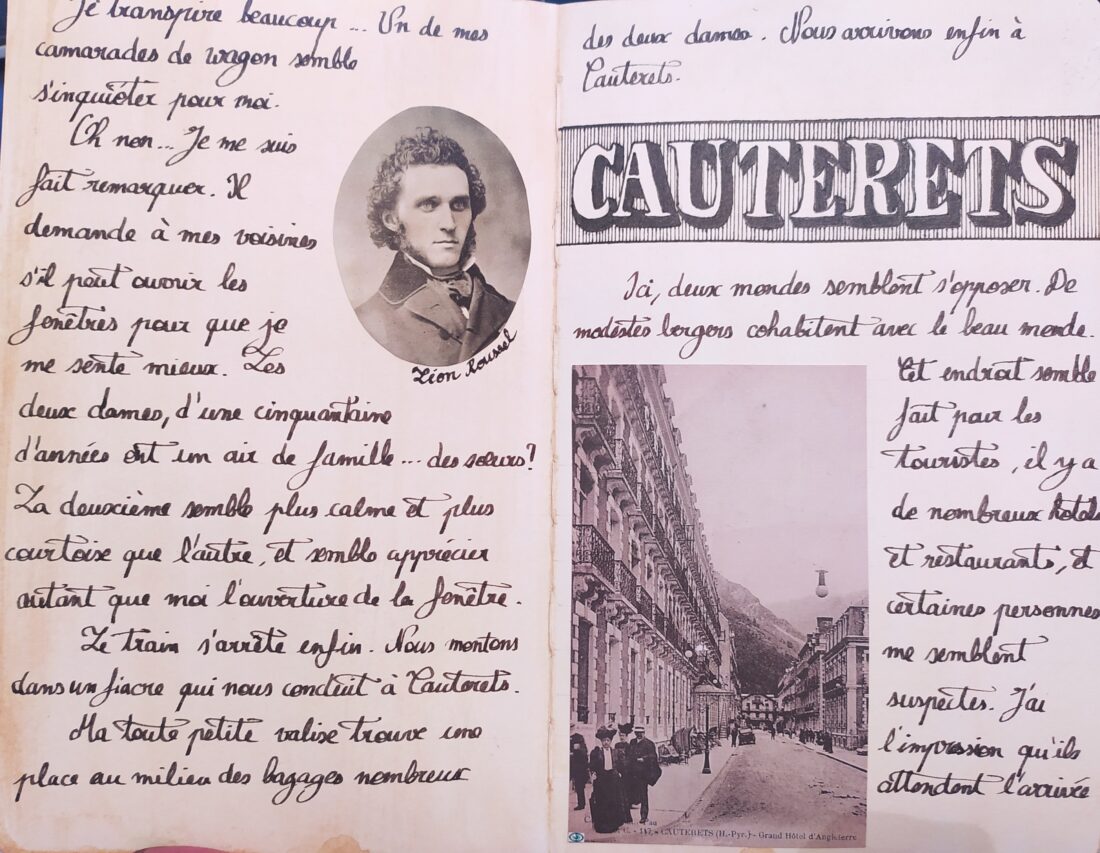 Je transpire beaucoup... Un de mes
camarades de wagon semble
s'inquiéter pour moi.
Oh non... Je me suis
fait remarquer. Il
demande à mes voisines
s'il peut ouvrir les
fenêtres pour que je
me sente mieux. Les
deux dames, d'une cinquantaine
d'années ont un air de famille... des sœurs?
La deuxième semble plus calme et plus
courtoise que l'autre, et semble apprécier
autant que moi l'ouverture de la fenêtre.
Le train s'arrête enfin. Nous montons
dans un fiacre qui nous conduit à Cauterets.
Ma toute petite valise trouve une
place au milieu des bagages nombreux
Léon Roussel
des deux dames. Nous arrivons enfin à
Cauterets.
CAUTERETS
Ici, deux mondes semblent s'opposer. De
modestes bergers cohabitent avec le beau monde.
Cet endroit semble
fait pour les
touristes, il y a
de nombreux hotels
et restaurants, et
certaines personnes
me semblent
suspectes. J'ai
l'impression qu'ils
attendent l'arrivée
147. - CAUTERETS (H.-Pyr.) - Grand Hôtel d'Angleterre